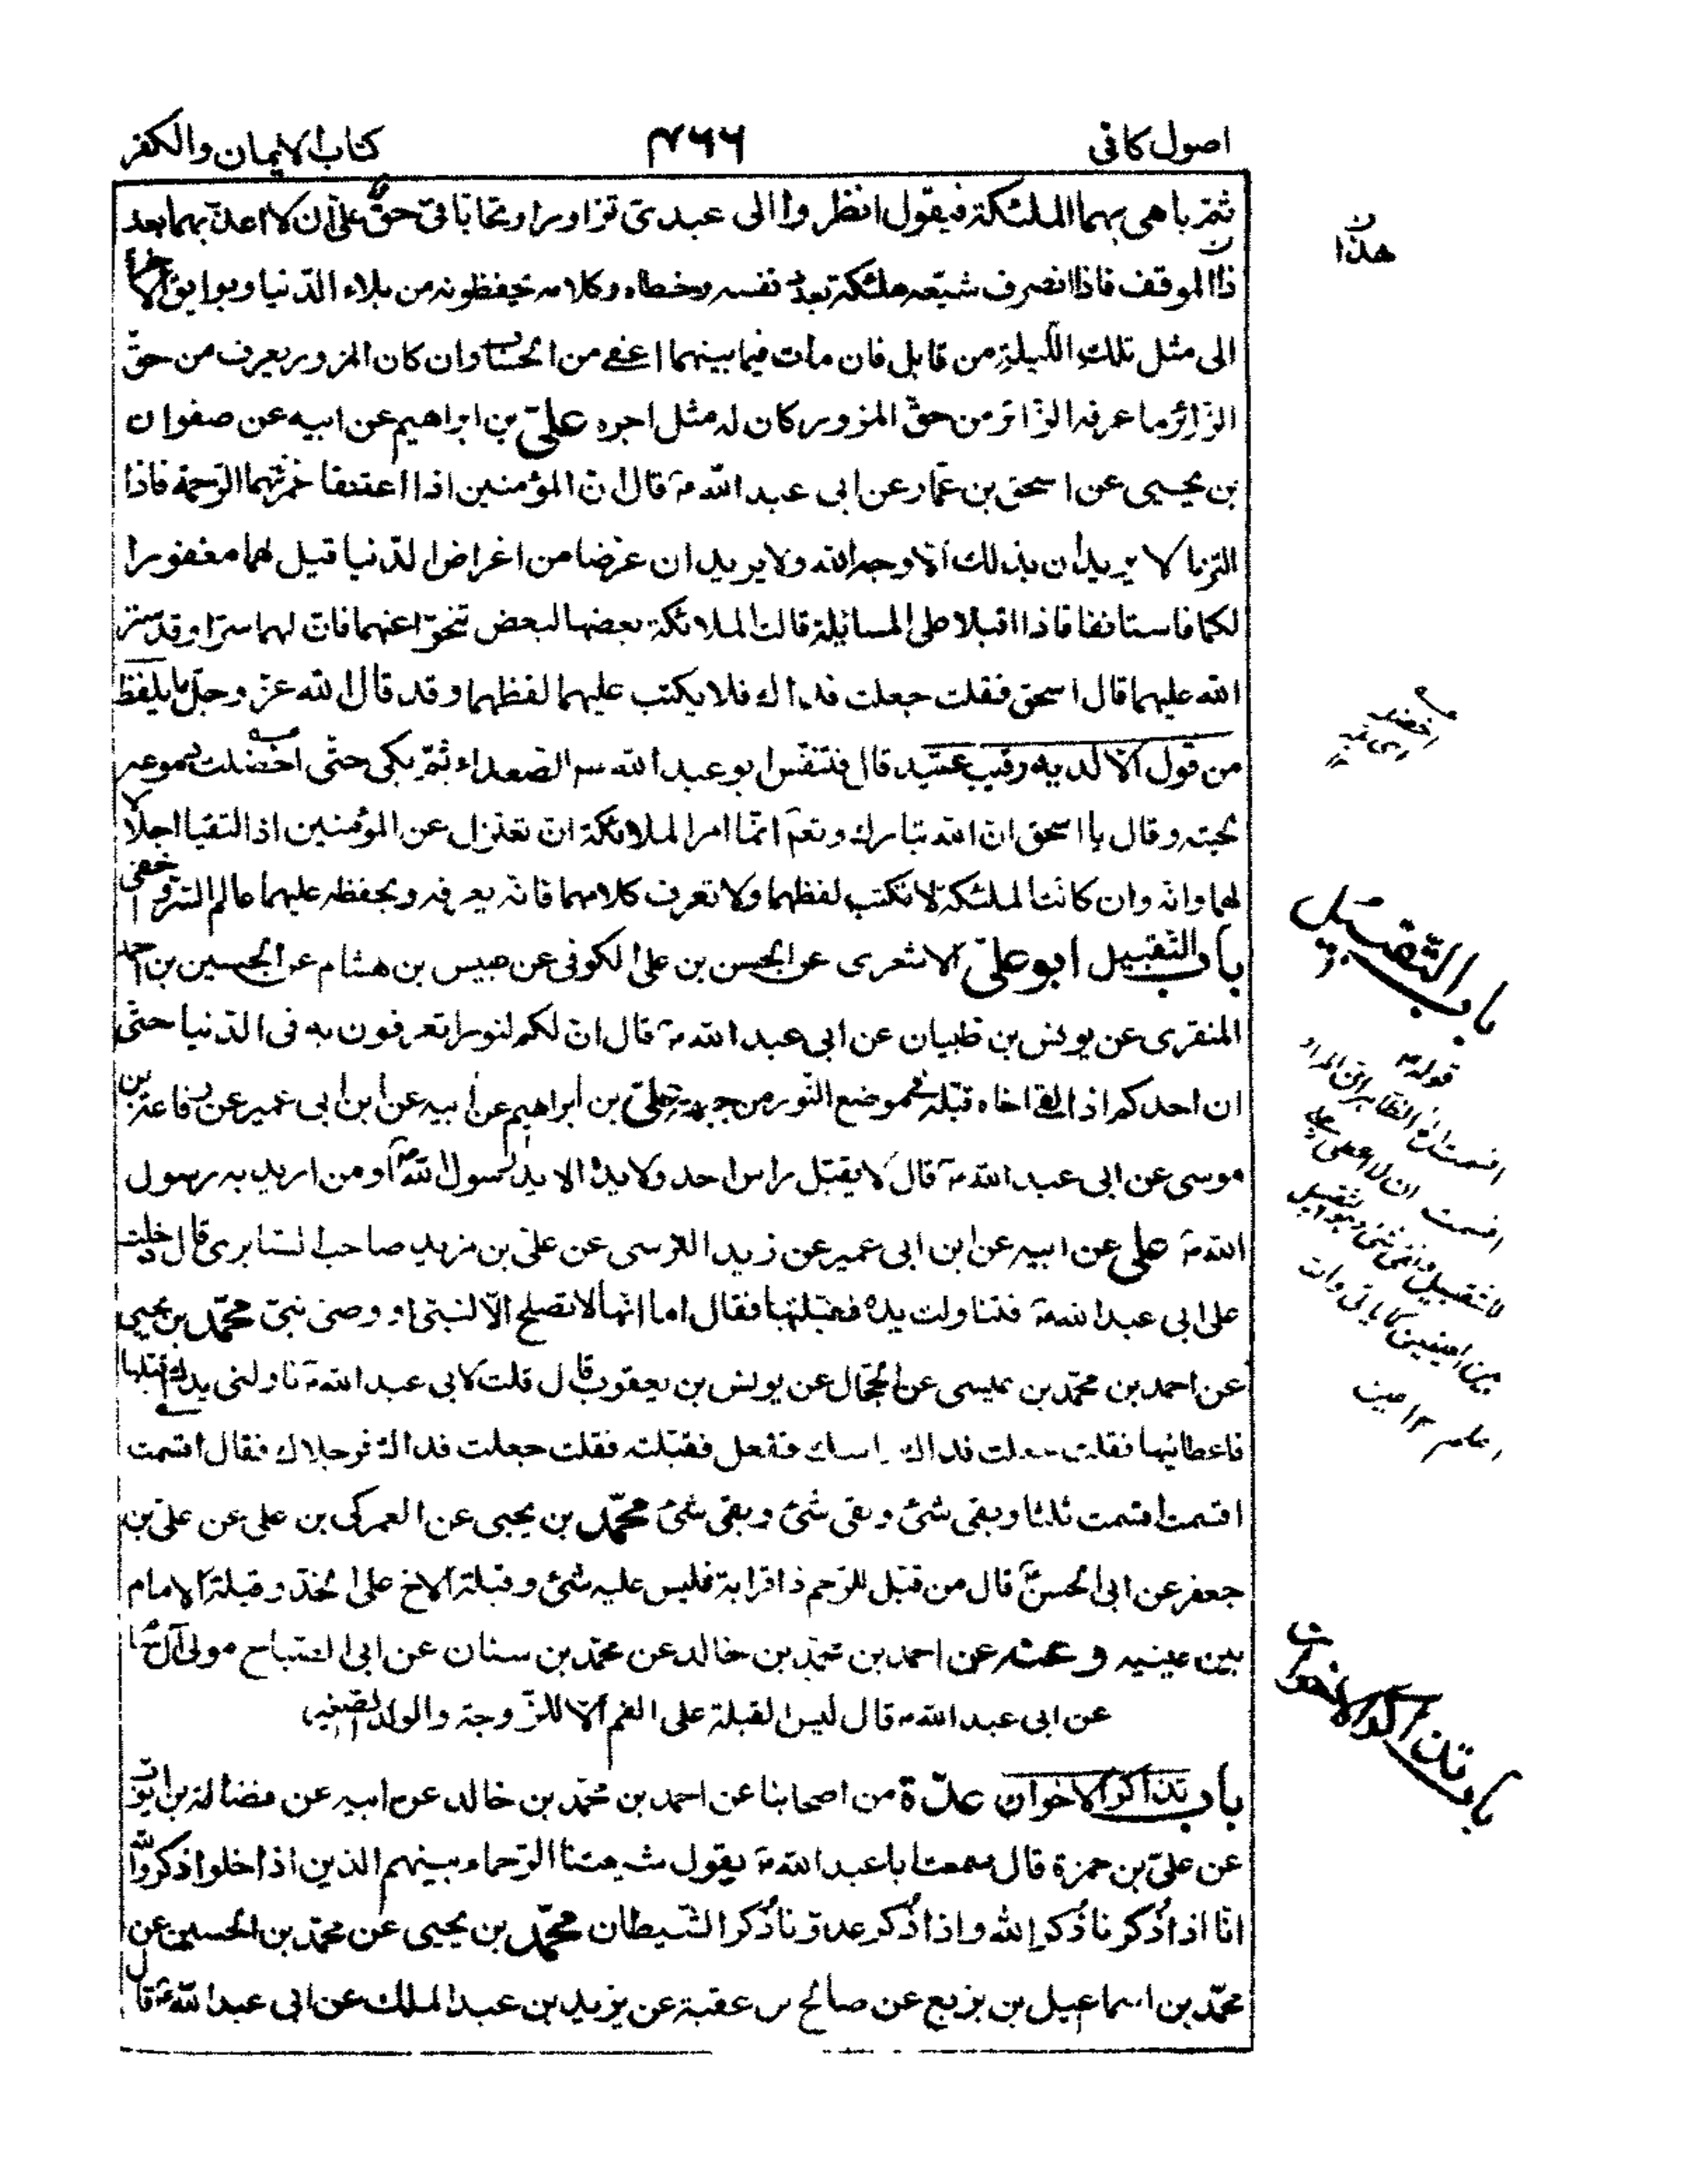 اصول كافى ۴۶۶ كتاب الايمان والكفر
ثم باهى بهما الملئكة فيقول انظروا الى عبدى تزاورا وتحابا فى حق على ان لا اعذبهما بعد
ذا الموقف فاذا انصرف شيعه ملئكة بعدد نفسه وخطاه وكلامه يحفظونه من بلاء الدنيا وبوايق الاخرة
الى مثل تلك الليلة من قابل فان مات فيما بينهما اعفى من الحساب وان كان المزور يعرف من حق
الزائر ما عرفه الزائر من حق المزور كان له مثل اجره على بن ابراهيم عن ابيه عن صفوان
بن يحيى عن اسحق بن عمار عن ابى عبد الله ع قال ان المؤمنين اذا اعتنقا غمرتهما الرحمة فاذا
التزما لا يريدان بذلك الا وجه الله ولا يريدان غرضا من اغراض الدنيا قيل لهما مغفورا
لكما فاستانفا فاذا اقبلا على المسائلة قالت الملائكة بعضها لبعض تنحوا عنهما فان لهما سرا وقد ستر
الله عليهما قال اسحق فقلت جعلت فداك فلا يكتب عليهما لفظهما وقد قال الله عز وجل ما يلفظ
من قول الا لديه رقيب عتيد قال فتنفس ابو عبد الله ع الصعداء ثم بكى حتى اخضلت دموعه
لحيته وقال يا اسحق ان الله تبارك وتعم انما امر الملائكة ان تعتزل عن المؤمنين اذا التقيا اجلالا
لهما وانه وان كانت الملئكة لا تكتب لفظهما ولا تعرف كلامهما فانه يعرفه ويحفظه عليهما عالم السر واخفى
باب التقبيل ابو على الاشعرى عن الحسن بن على الكوفى عن عبيس بن هشام عن الحسين بن احمد
المنقرى عن يونس بن ظبيان عن ابى عبد الله ع قال ان لكم لنورا تعرفون به فى الدنيا حتى
ان احدكم اذا لقى اخاه قبله فى موضع النور من جبهته على بن ابراهيم عن ابيه عن ابن ابى عمير عن رفاعة بن
موسى عن ابى عبد الله ع قال لا يقبل راس احد ولا يده الا يد رسول الله ص او من اريد به رسول
الله ص على عن ابيه عن ابن ابى عمير عن زيد النرسى عن على بن مزيد صاحب السابرى قال دخلت
على ابى عبد الله ع فتناولت يده فقبلتها فقال اما انها لا تصلح الا لنبى او وصى نبى محمد بن يحيى
عن احمد بن محمد بن عيسى عن الحجال عن يونس بن يعقوب قال قلت لابى عبد الله ع ناولنى يدك اقبلها
فاعطانيها فقلت جعلت فداك راسك ففعل فقبلته فقلت جعلت فداك فرجلاك فقال اقسمت
اقسمت اقسمت ثلثا وبقى شئ وبقى شئ وبقى شئ محمد بن يحيى عن العمركى بن على عن على بن
جعفر عن ابى الحسن ع قال من قبل للرحم ذا قرابة فليس عليه شئ وقبلة الاخ على الخد وقبلة الامام
بين عينيه وعنه عن احمد بن محمد بن خالد عن محمد بن سنان عن ابى الصباح مولى آل سام
عن ابى عبد الله ع قال ليس القبلة على الفم الا للزوجة والولد الصغير
باب تذاكر الاخوان عدة من اصحابنا عن احمد بن محمد بن خالد عن ابيه عن فضالة بن ايوب
عن على بن حمزة قال سمعت ابا عبد الله ع يقول شيعتنا الرحماء بينهم الذين اذا خلوا ذكروا الله
انا اذا ذكرنا ذكر الله واذا ذكر عدونا ذكر الشيطان محمد بن يحيى عن محمد بن الحسين عن
محمد بن اسماعيل بن بزيع عن صالح بن عقبة عن يزيد بن عبد الملك عن ابى عبد الله ع قال
هذا ن
باب التقبيل
قوله ع
اقسمت
باب تذاكر الاخوان